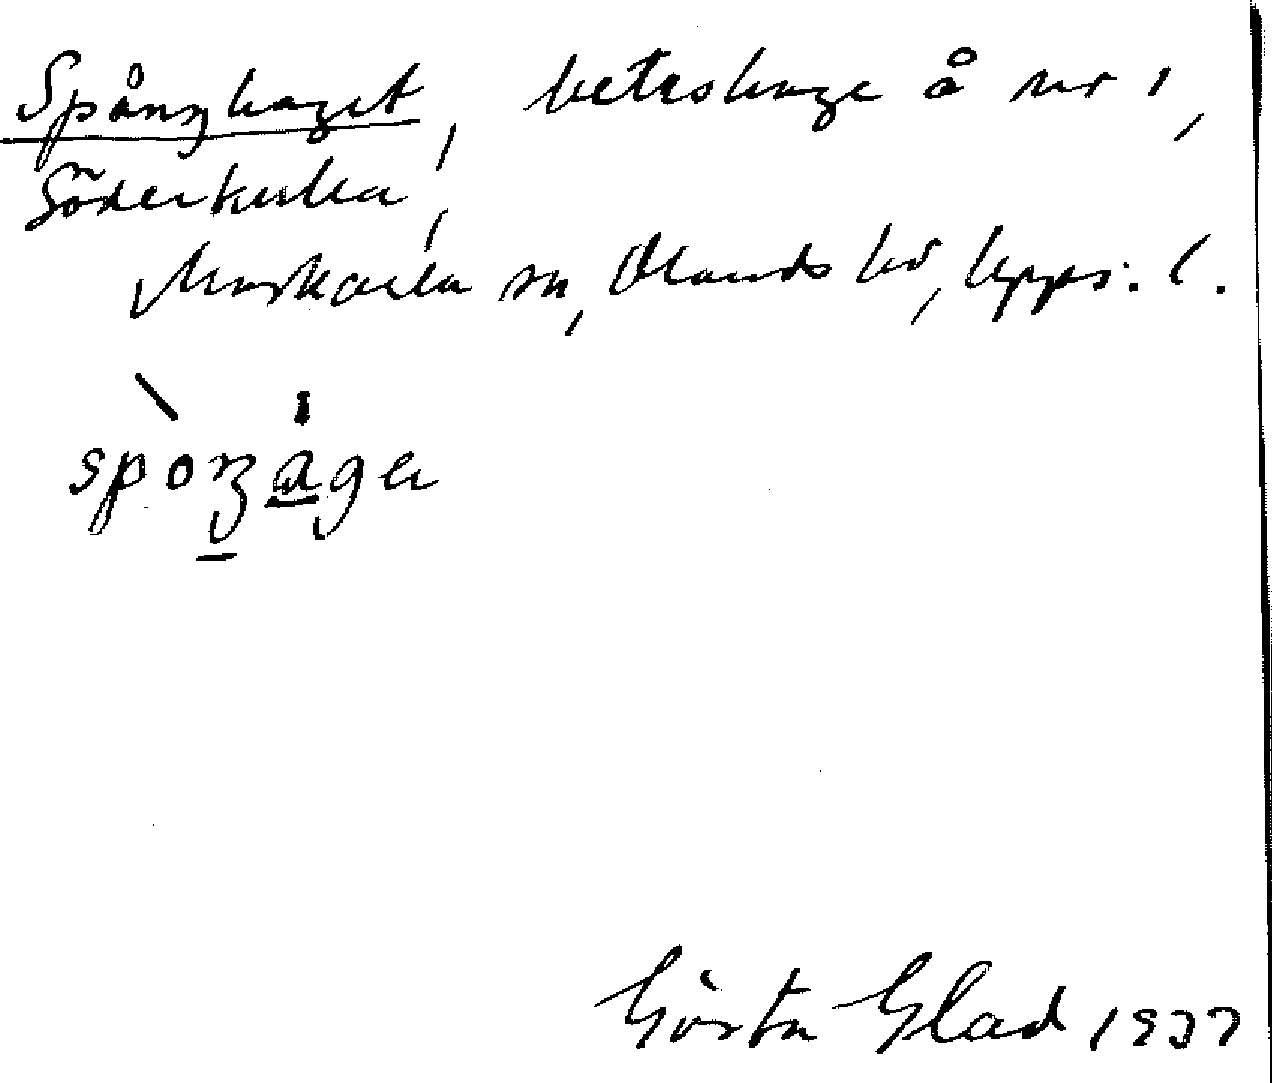 Spånghaget, beteshage å nr 1,
Söderkulla,
Morkarla sn, Olands hd, Upps. l.
spoŋagər
Gösta Glad 1937